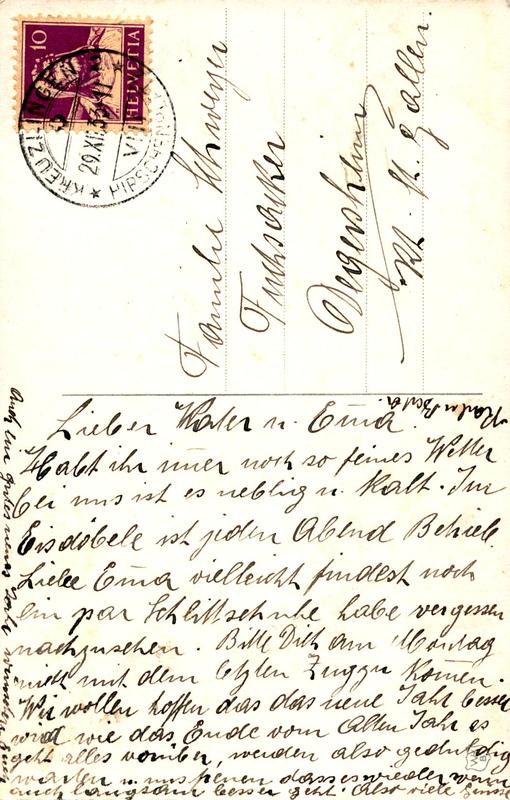 10
HELVETIA
KREUZLINGEN
29.XII.33.
HIRSCHEN
Familie Schweizer
Fuchsacker
Degersheim
Kt. St. Gallen.
Lieber Vater u. Ema.
Habt ihr imer noch so feines Wetter
bei uns ist es neblig u. Kalt. Im
Eisdöbele ist jeden Abend Betrieb.
Liebe Ema vielleicht findest noch
ein par Schlittschuhe habe vergessen
nachzusehen. Bitte Dich am Montag
nicht mit dem letzten Zug zu Komen.
Wir wollen hoffen das das neue Jahr besser
wird wie das Ende vom Alten Jahr es
geht alles vorüber, werden also geduldig
warten u. uns dass es wieder wenn
auch langsam besser geht. Also viele Grüsse
Auch ein gutes neues Jahr wünschen euch
Karl u. Berta.